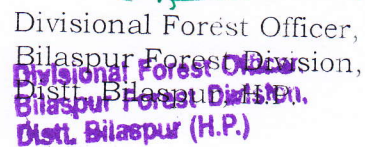 Divisional Forest Officer,
Bilaspur Forest Division,
Distt. Bilaspur, H.P.
Divisional Forest Officer,
Bilaspur Forest Division,
Distt. Bilaspur (H.P.)